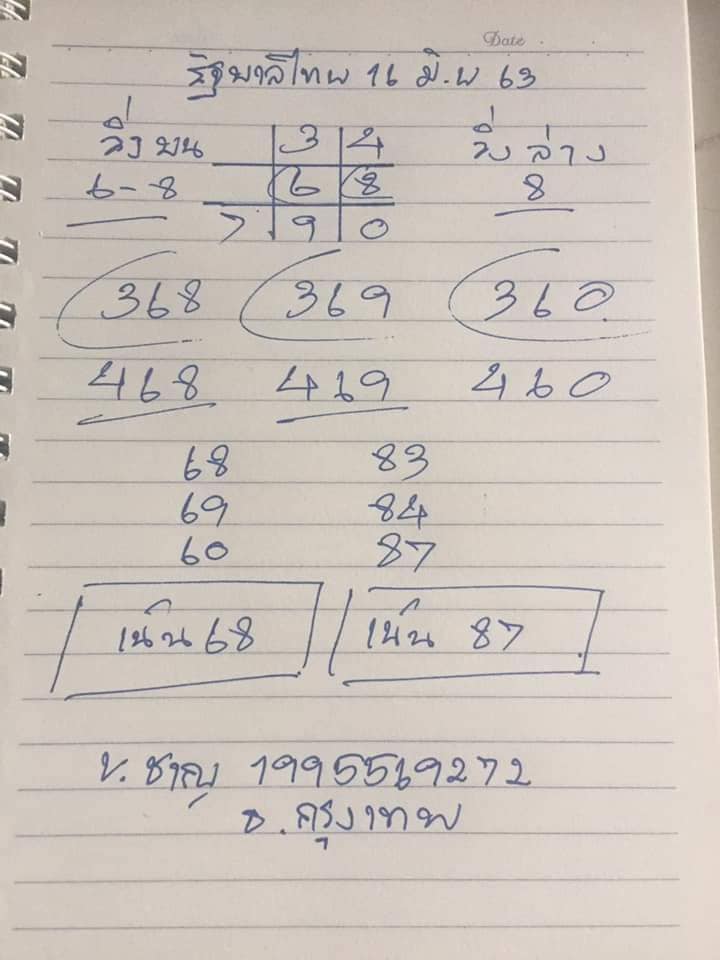 Date
รัฐบาลไทย 16 มิ.ย 63
วิ่งบน 3 4 วิ่งล่าง
6-8 6 8 8
7 9 0
368 369 360
468 469 460
68 83
69 84
60 87
เน้น 68 เน้น 87
ช. ชาญ 1995569272
ธ. กรุงเทพ